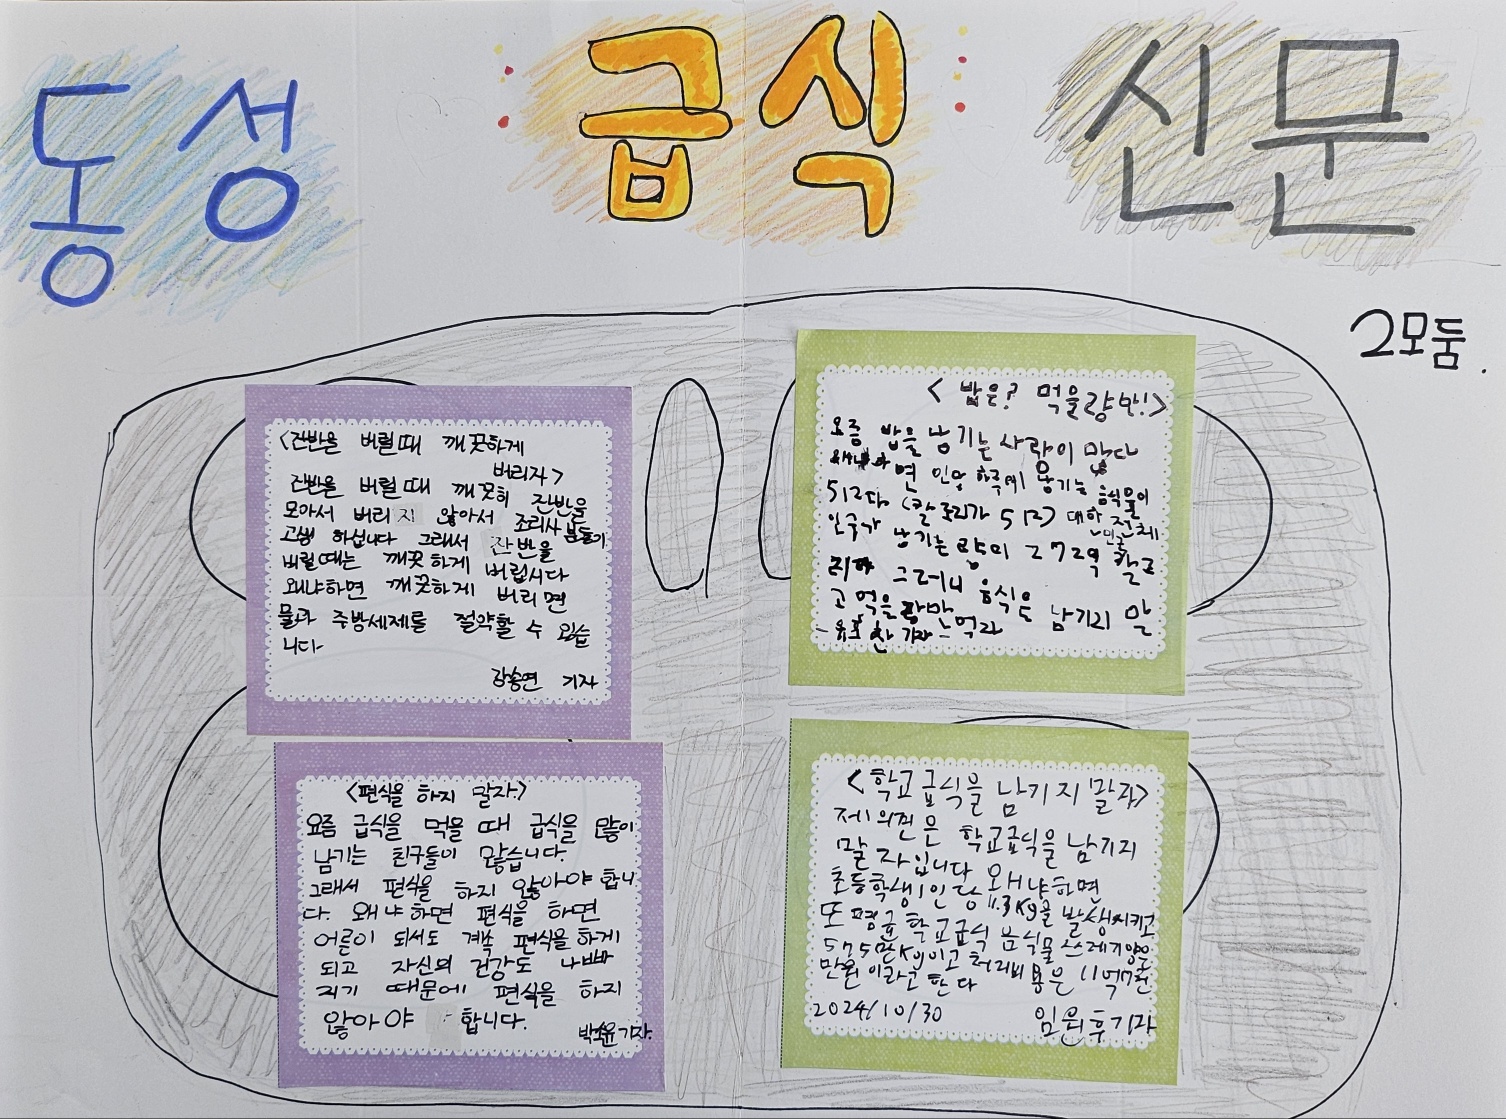 동성 급식 신문
2모둠.
<잔반을 버릴때 깨끗하게
버리자>
잔반을 버릴때 깨끗히 잔반을
모아서 버리지 않아서 조리사분들이
고생 하십니다 그래서 잔반을
버릴때는 깨끗하게 버립시다
왜냐하면 깨끗하게 버리면
물과 주방세제를 절약할 수 있습
니다
강승연 기자
< 밥은? 먹을량만!>
요즘 밥을 남기는 사람이 많다
왜냐하면 인당 하루에 남기는 음식물이
512다 (칼로리가 512) 대한
민국 전체
인구가 남기는 량이 272억 칼로
리야 그러니 음식을 남기지 말
고 먹을량만 먹라
찬 기자
<편식을 하지 말자.>
요즘 급식을 먹을 때 급식을 많이
남기는 친구들이 많습니다.
그래서 편식을 하지 않아야 합니
다. 왜냐하면 편식을 하면
어른이 되서도 계속 편식을 하게
되고 자신의 건강도 나빠
지기 때문에 편식을 하지
않아야 합니다.
박소윤 기자.
<학교급식을 남기지 말자>
제 의견은 학교급식을 남기지
말자입니다 왜냐하면
초등학생 1인당 11.3kg을 발생시키고
또 평균 학교급식 음식물 쓰레기양은
575만kg이고 처리비용은 11억7천
만원이라고 한다
2024/10/30
임윤후기자